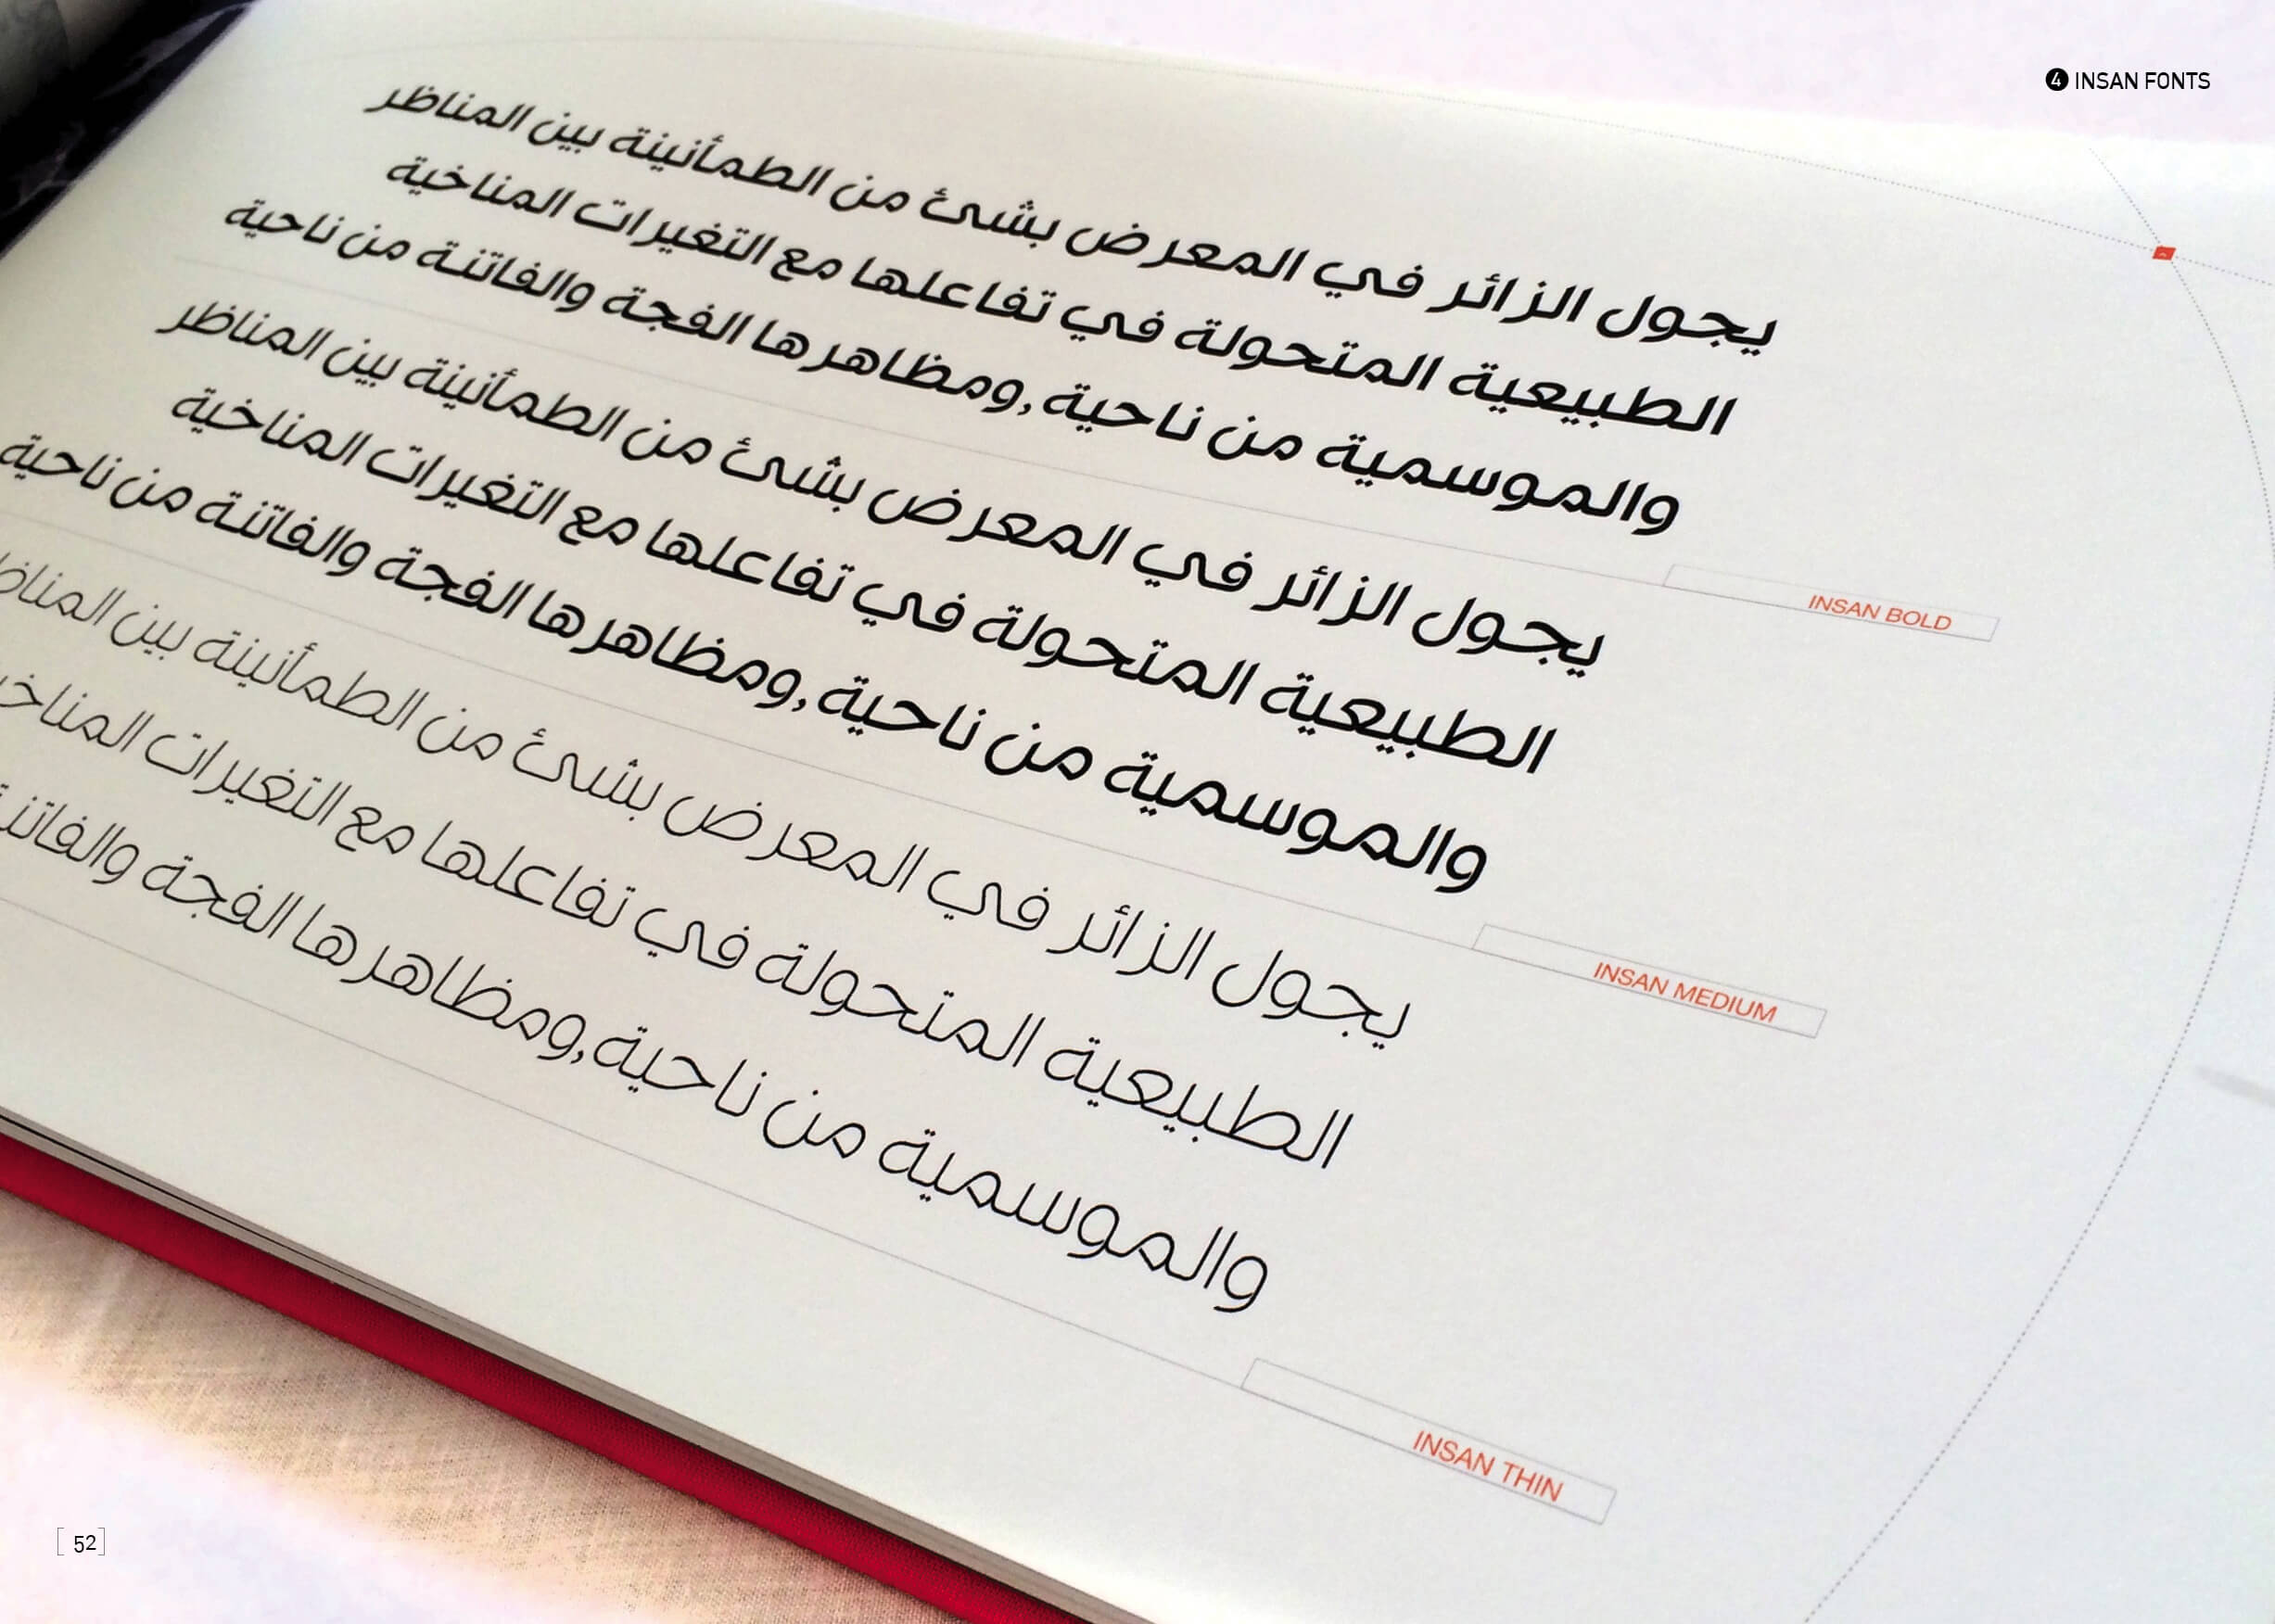 4 INSAN FONTS
يجول الزائر في المعرض بشئ من الطمأنينة بين المناظر
الطبيعية المتحولة في تفاعلها مع التغيرات المناخية
والموسمية من ناحية ,ومظاهرها الفجة والفاتنة من ناحية
INSAN BOLD
يجول الزائر في المعرض بشئ من الطمأنينة بين المناظر
الطبيعية المتحولة في تفاعلها مع التغيرات المناخية
والموسمية من ناحية ,ومظاهرها الفجة والفاتنة من ناحية
INSAN MEDIUM
يجول الزائر في المعرض بشئ من الطمأنينة بين
الطبيعية المتحولة في تفاعلها مع التغيرات
والموسمية من ناحية ,ومظاهرها الفجة
INSAN THIN
[ 52 ]